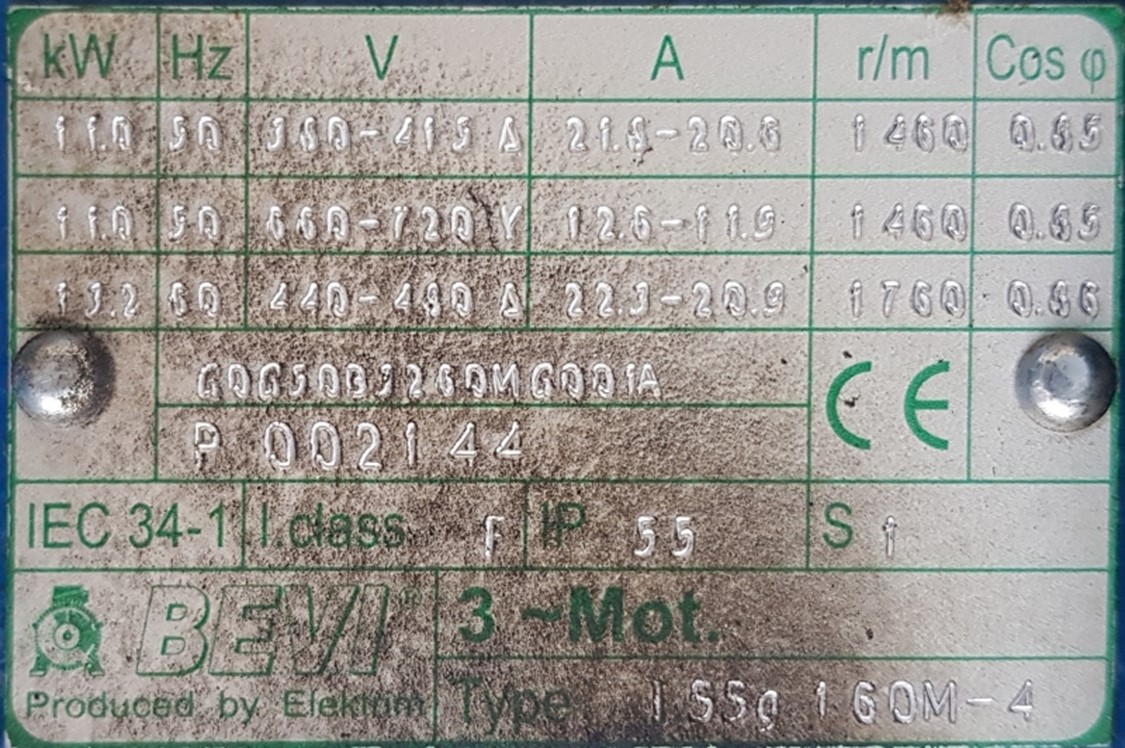 kW Hz V A r/m Cos φ
11.0 50 380-415 Δ 21.8-20.6 1460 0.85
11.0 50 660-720 Y 12.6-11.9 1460 0.85
13.2 60 440-480 Δ 22.3-20.9 1760 0.86
CE
P 002144
IEC 34-1 I.class F IP 55 S 1
BEVI® 3 ~Mot.
Produced by Elektrim Type 1SSg 160M-4